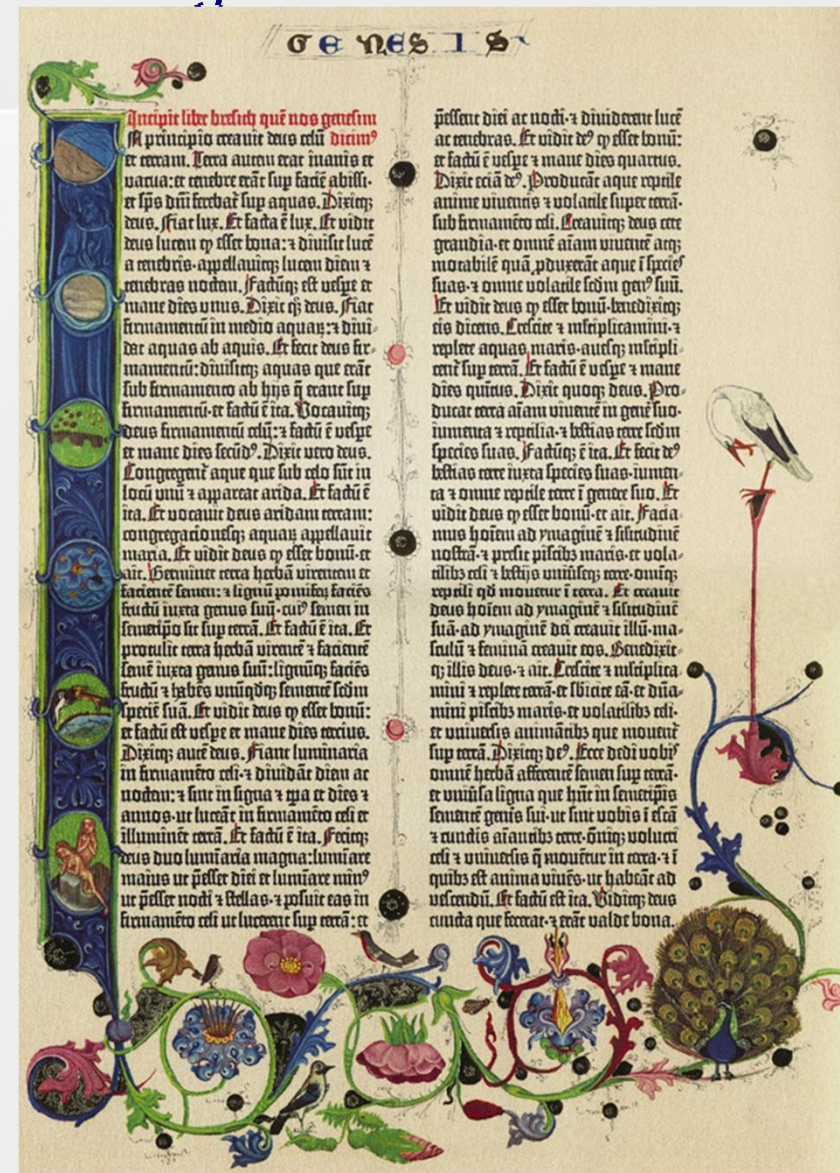 GENESIS
Incipit liber bresich quē nos genesim
In principio creauit deus celū dicimꝰ
et terram. Terra autem erat inanis et
vacua: et tenebre erāt sup faciē abissi·
et spūs dn̄i ferebat̄ sup aquas. Dixitqꝫ
deus. Fiat lux. Et facta ē lux. Et vidit
deus lucem ꝙ esset bona: ⁊ diuisit lucē
a tenebris· appellauitqꝫ lucem diem ⁊
tenebras noctem. Factūqꝫ est vespe et
mane dies vnus. Dixit qꝫ deus. Fiat
firmamentū in medio aquaꝝ: ⁊ diui-
dat aquas ab aquis. Et fecit deus fir-
mamentū: diuisitqꝫ aquas que erāt
sub firmamento ab hijs q̄ erant sup
firmamentū· et factū ē ita. Vocauitqꝫ
deus firmamentū celū: ⁊ factū ē vespe
et mane dies secūdꝰ. Dixit vero deus.
Congregent̄ aque que sub celo sūt in
locū vnū ⁊ appareat arida. Et factū ē
ita. Et vocauit deus aridam terram:
congregacionesqꝫ aquaꝝ appellauit
maria. Et vidit deus ꝙ esset bonū· et
ait. Germinet terra herbā virentem et
facientē semen: ⁊ lignū pomifeꝝ faciēs
fructū iuxta genus suū· cuiꝰ semen in
semetip̄o sit sup terrā. Et factū ē ita. Et
protulit terra herbā virentē ⁊ facientē
semē iuxta genus suū: lignūqꝫ faciēs
fructū ⁊ habēs vnūqdqꝫ sementē scdm
speciē suā. Et vidit deus ꝙ esset bonū:
et factū est vespe et mane dies tercius.
Dixitqꝫ autē deus. Fiant luminaria
in firmamēto celi· ⁊ diuidāt diem ac
noctem: ⁊ sint in signa ⁊ tp̄a et dies ⁊
annos· ut luceāt in firmamēto celi et
illuminēt terrā. Et factū ē ita. Fecitqꝫ
deus duo lumīaria magna: lumīare
maius ut p̄esset diei et lumīare minꝰ
ut p̄esset nocti ⁊ stellas· ⁊ posuit eas in
firmamēto celi ut lucerent sup terrā: et
p̄essent diei ac nocti· ⁊ diuiderent lucē
ac tenebras. Et vidit deꝰ ꝙ esset bonū:
et factū ē vespe ⁊ mane dies quartus.
Dixit eciā deꝰ. Producāt aque reptile
anime viuentis ⁊ volatile super terrā·
sub firmamēto celi. Creauitqꝫ deus cete
grandia· et omnē aīam viuentē atqꝫ
motabilē quā ꝓduxerāt aque ī species
suas· ⁊ omne volatile scdm genꝰ suū.
Et vidit deus ꝙ esset bonū· benedixitqꝫ
eis dicens. Crescite ⁊ mltiplicamini· ⁊
replete aquas maris· auesqꝫ mltipli-
cent̄ sup terrā. Et factū ē vespe ⁊ mane
dies quītus. Dixit quoqꝫ deus. Pro-
ducat terra aīam viuentē in genē suo·
iumenta ⁊ reptilia· ⁊ bestias terre scdm
species suas. Factūqꝫ ē ita. Et fecit deꝰ
bestias terre iuxta species suas· iumen-
ta ⁊ omne reptile terre ī genere suo. Et
vidit deus ꝙ esset bonū· et ait. Facia-
mus hoīem ad ymaginē ⁊ silitudinē
nostrā· ⁊ presit piscibꝫ maris· et vola-
tilibꝫ celi ⁊ bestijs vniūseqꝫ terre· omīqꝫ
reptili qd mouetur ī terra. Et creauit
deus hoīem ad ymaginē ⁊ silitudinē
suā· ad ymaginē dei creauit illū· ma-
sculū ⁊ feminā creauit eos. Benedixit-
qꝫ illis deus· ⁊ ait. Crescite ⁊ mltiplica-
mini ⁊ replete terrā· et sbicite eā· et dn̄a-
mini piscibꝫ maris· et volatilibꝫ celi·
et vniuersis animātibꝫ que mouent̄
sup terrā. Dixitqꝫ deꝰ. Ecce dedi vobis
omnē herbā afferentē semen sup terrā·
et vniūsa ligna que hn̄t in semetip̄is
sementē genis sui· ut sint vobis ī escā
⁊ cunctis aīantibꝫ terre· om̄iqꝫ volucri
celi ⁊ vniuersis q̄ mouētur in terra· ⁊ ī
quibꝫ est anima viuēs· ut habeāt ad
vescendū. Et factū est ita. Viditqꝫ deus
cuncta que fecerat· ⁊ erāt valde bona.